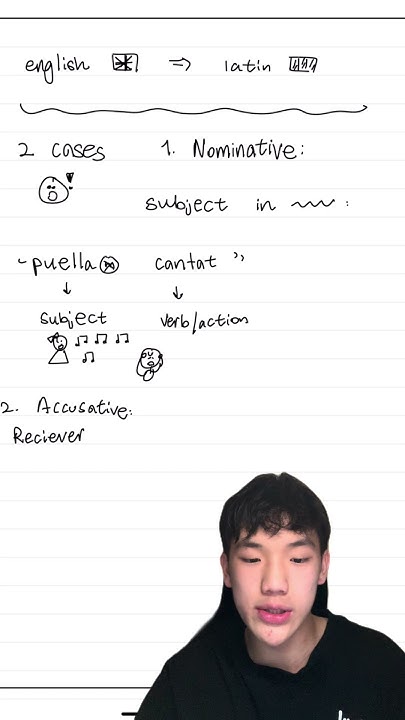 english ⇒ latin
2 cases 1. Nominative:
subject in :
"puella cantat"
↓ ↓
subject verb/action
2. Accusative:
Reciever